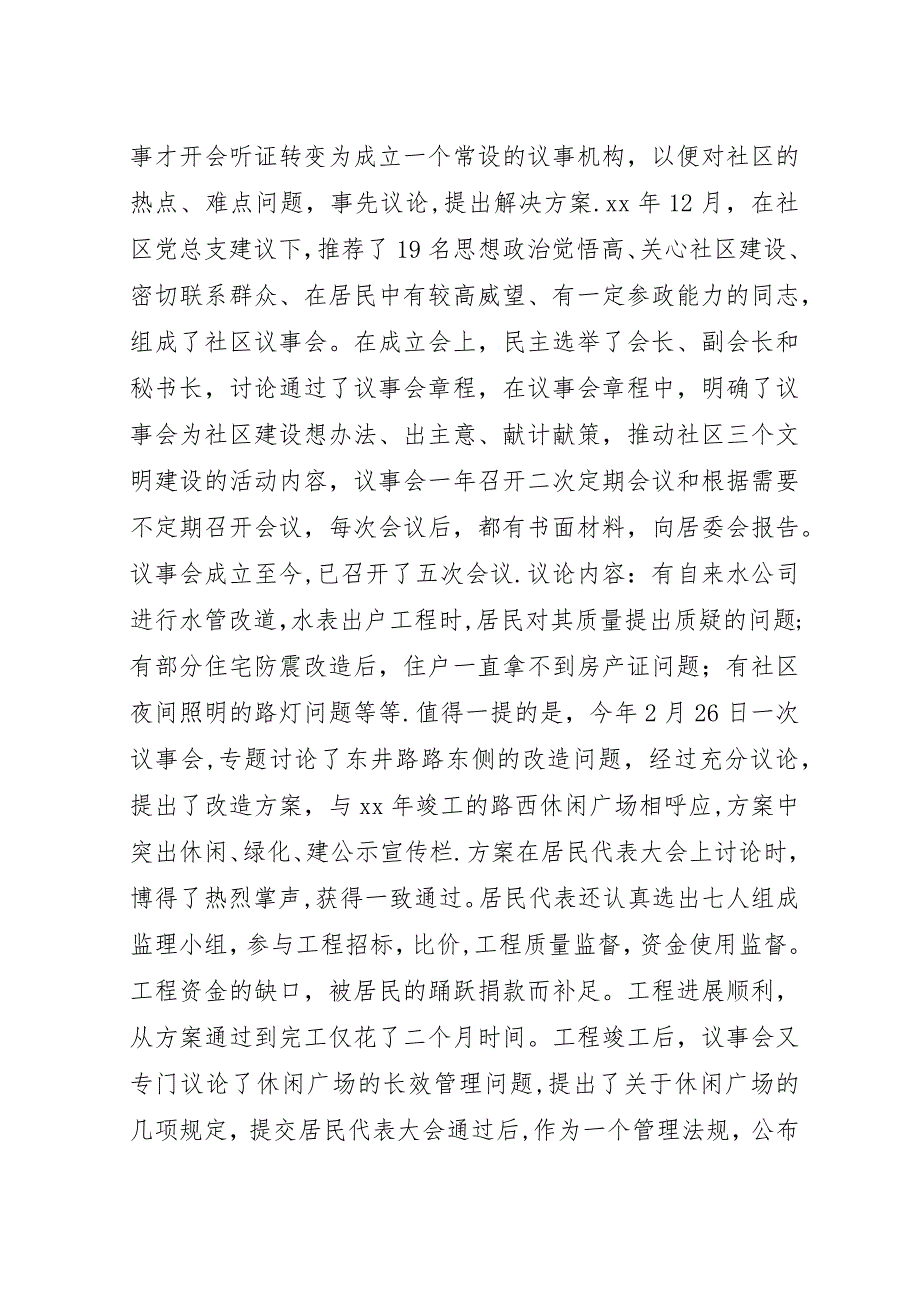 事才开会听证转变为成立一个常设的议事机构，以便对社区的
热点、难点问题，事先议论,提出解决方案.xx 年 12 月，在社
区党总支建议下,推荐了 19 名思想政治觉悟高、关心社区建设、
密切联系群众、在居民中有较高威望、有一定参政能力的同志，
组成了社区议事会。在成立会上，民主选举了会长、副会长和
秘书长，讨论通过了议事会章程，在议事会章程中，明确了议
事会为社区建设想办法、出主意、献计献策，推动社区三个文
明建设的活动内容，议事会一年召开二次定期会议和根据需要
不定期召开会议，每次会议后，都有书面材料，向居委会报告。
议事会成立至今,已召开了五次会议.议论内容：有自来水公司
进行水管改道,水表出户工程时,居民对其质量提出质疑的问题;
有部分住宅防震改造后，住户一直拿不到房产证问题；有社区
夜间照明的路灯问题等等.值得一提的是，今年 2 月 26 日一次
议事会,专题讨论了东井路路东侧的改造问题，经过充分议论，
提出了改造方案，与 xx 年竣工的路西休闲广场相呼应,方案中
突出休闲、绿化、建公示宣传栏.方案在居民代表大会上讨论时，
博得了热烈掌声,获得一致通过。居民代表还认真选出七人组成
监理小组，参与工程招标，比价,工程质量监督，资金使用监督。
工程资金的缺口，被居民的踊跃捐款而补足。工程进展顺利，
从方案通过到完工仅花了二个月时间。工程竣工后，议事会又
专门议论了休闲广场的长效管理问题,提出了关于休闲广场的
几项规定，提交居民代表大会通过后,作为一个管理法规，公布